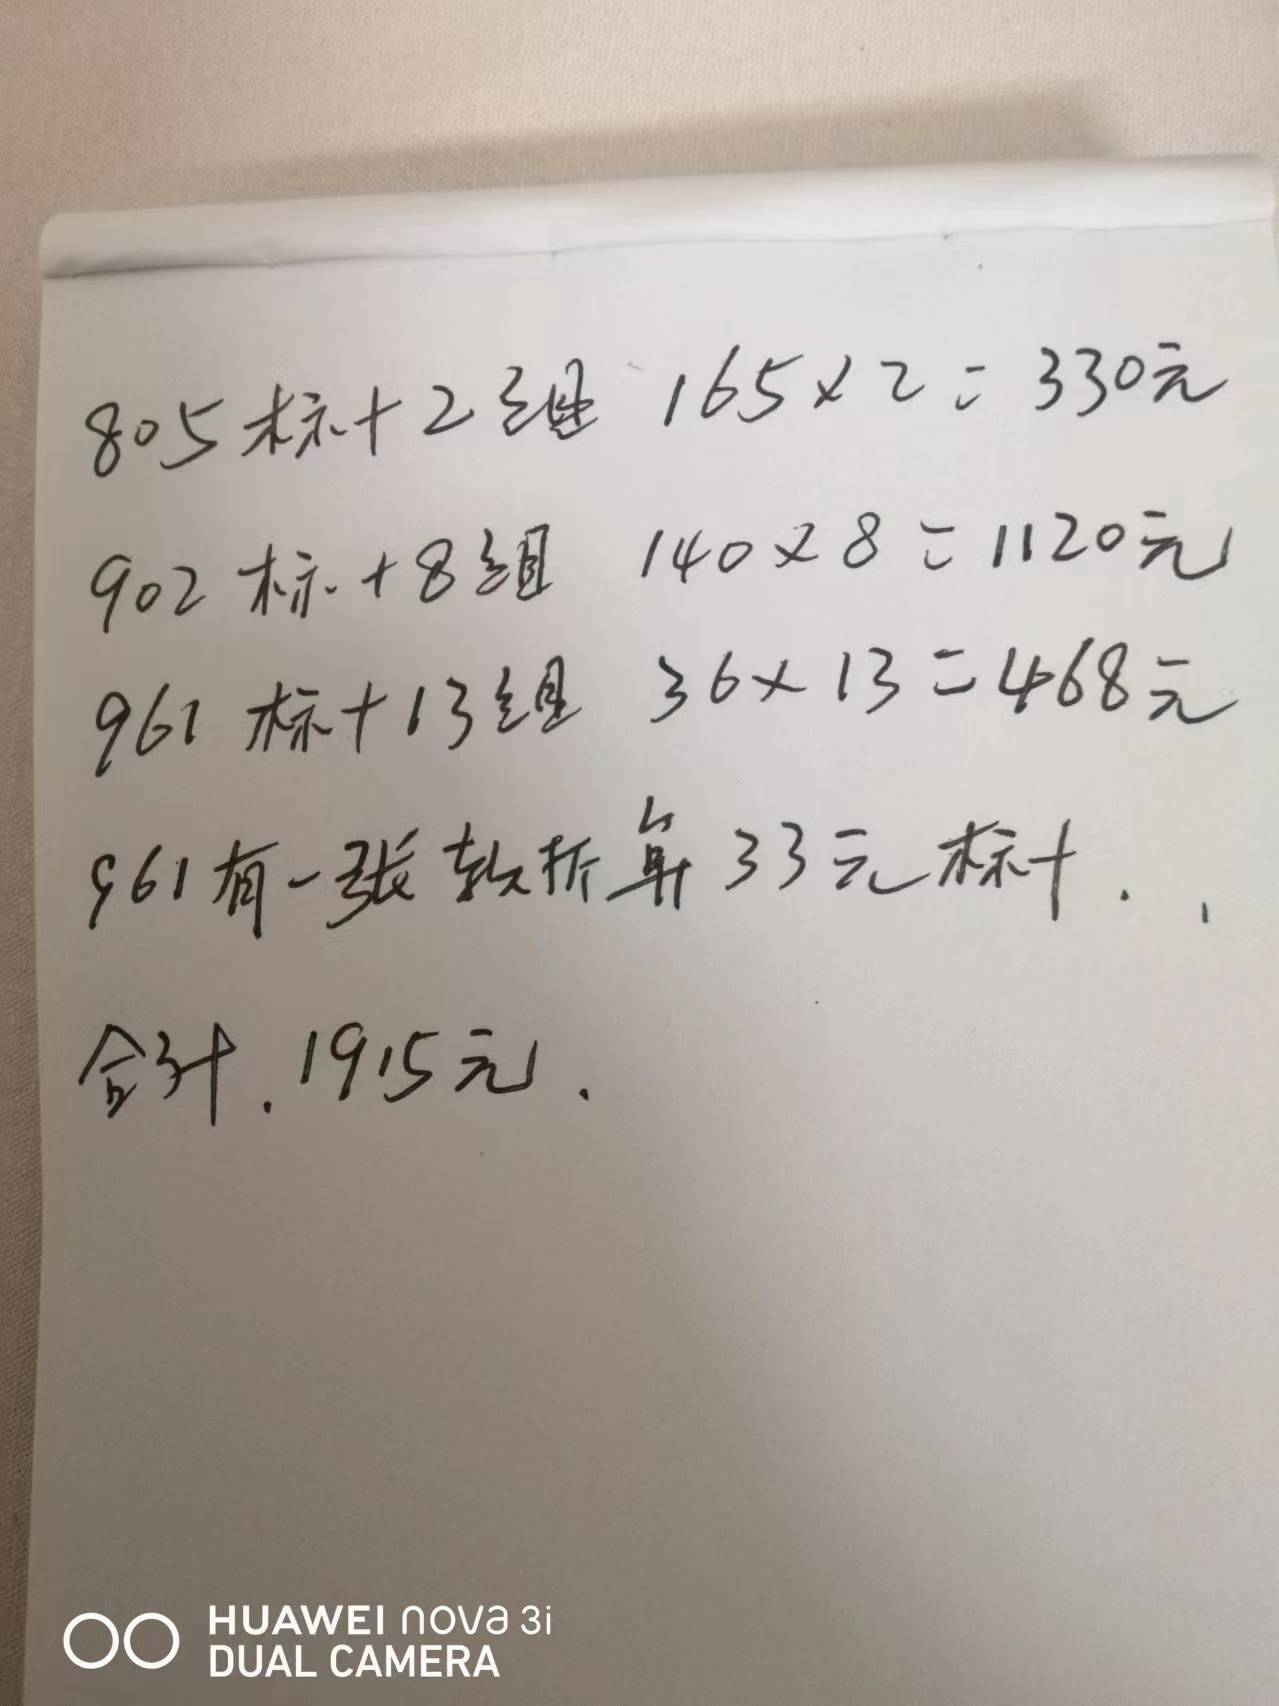 805标十2组 165×2=330元
902标十8组 140×8=1120元
961标十13组 36×13=468元
961有一张软折算33元标十.
合计.1915元.
HUAWEI nova 3i
DUAL CAMERA